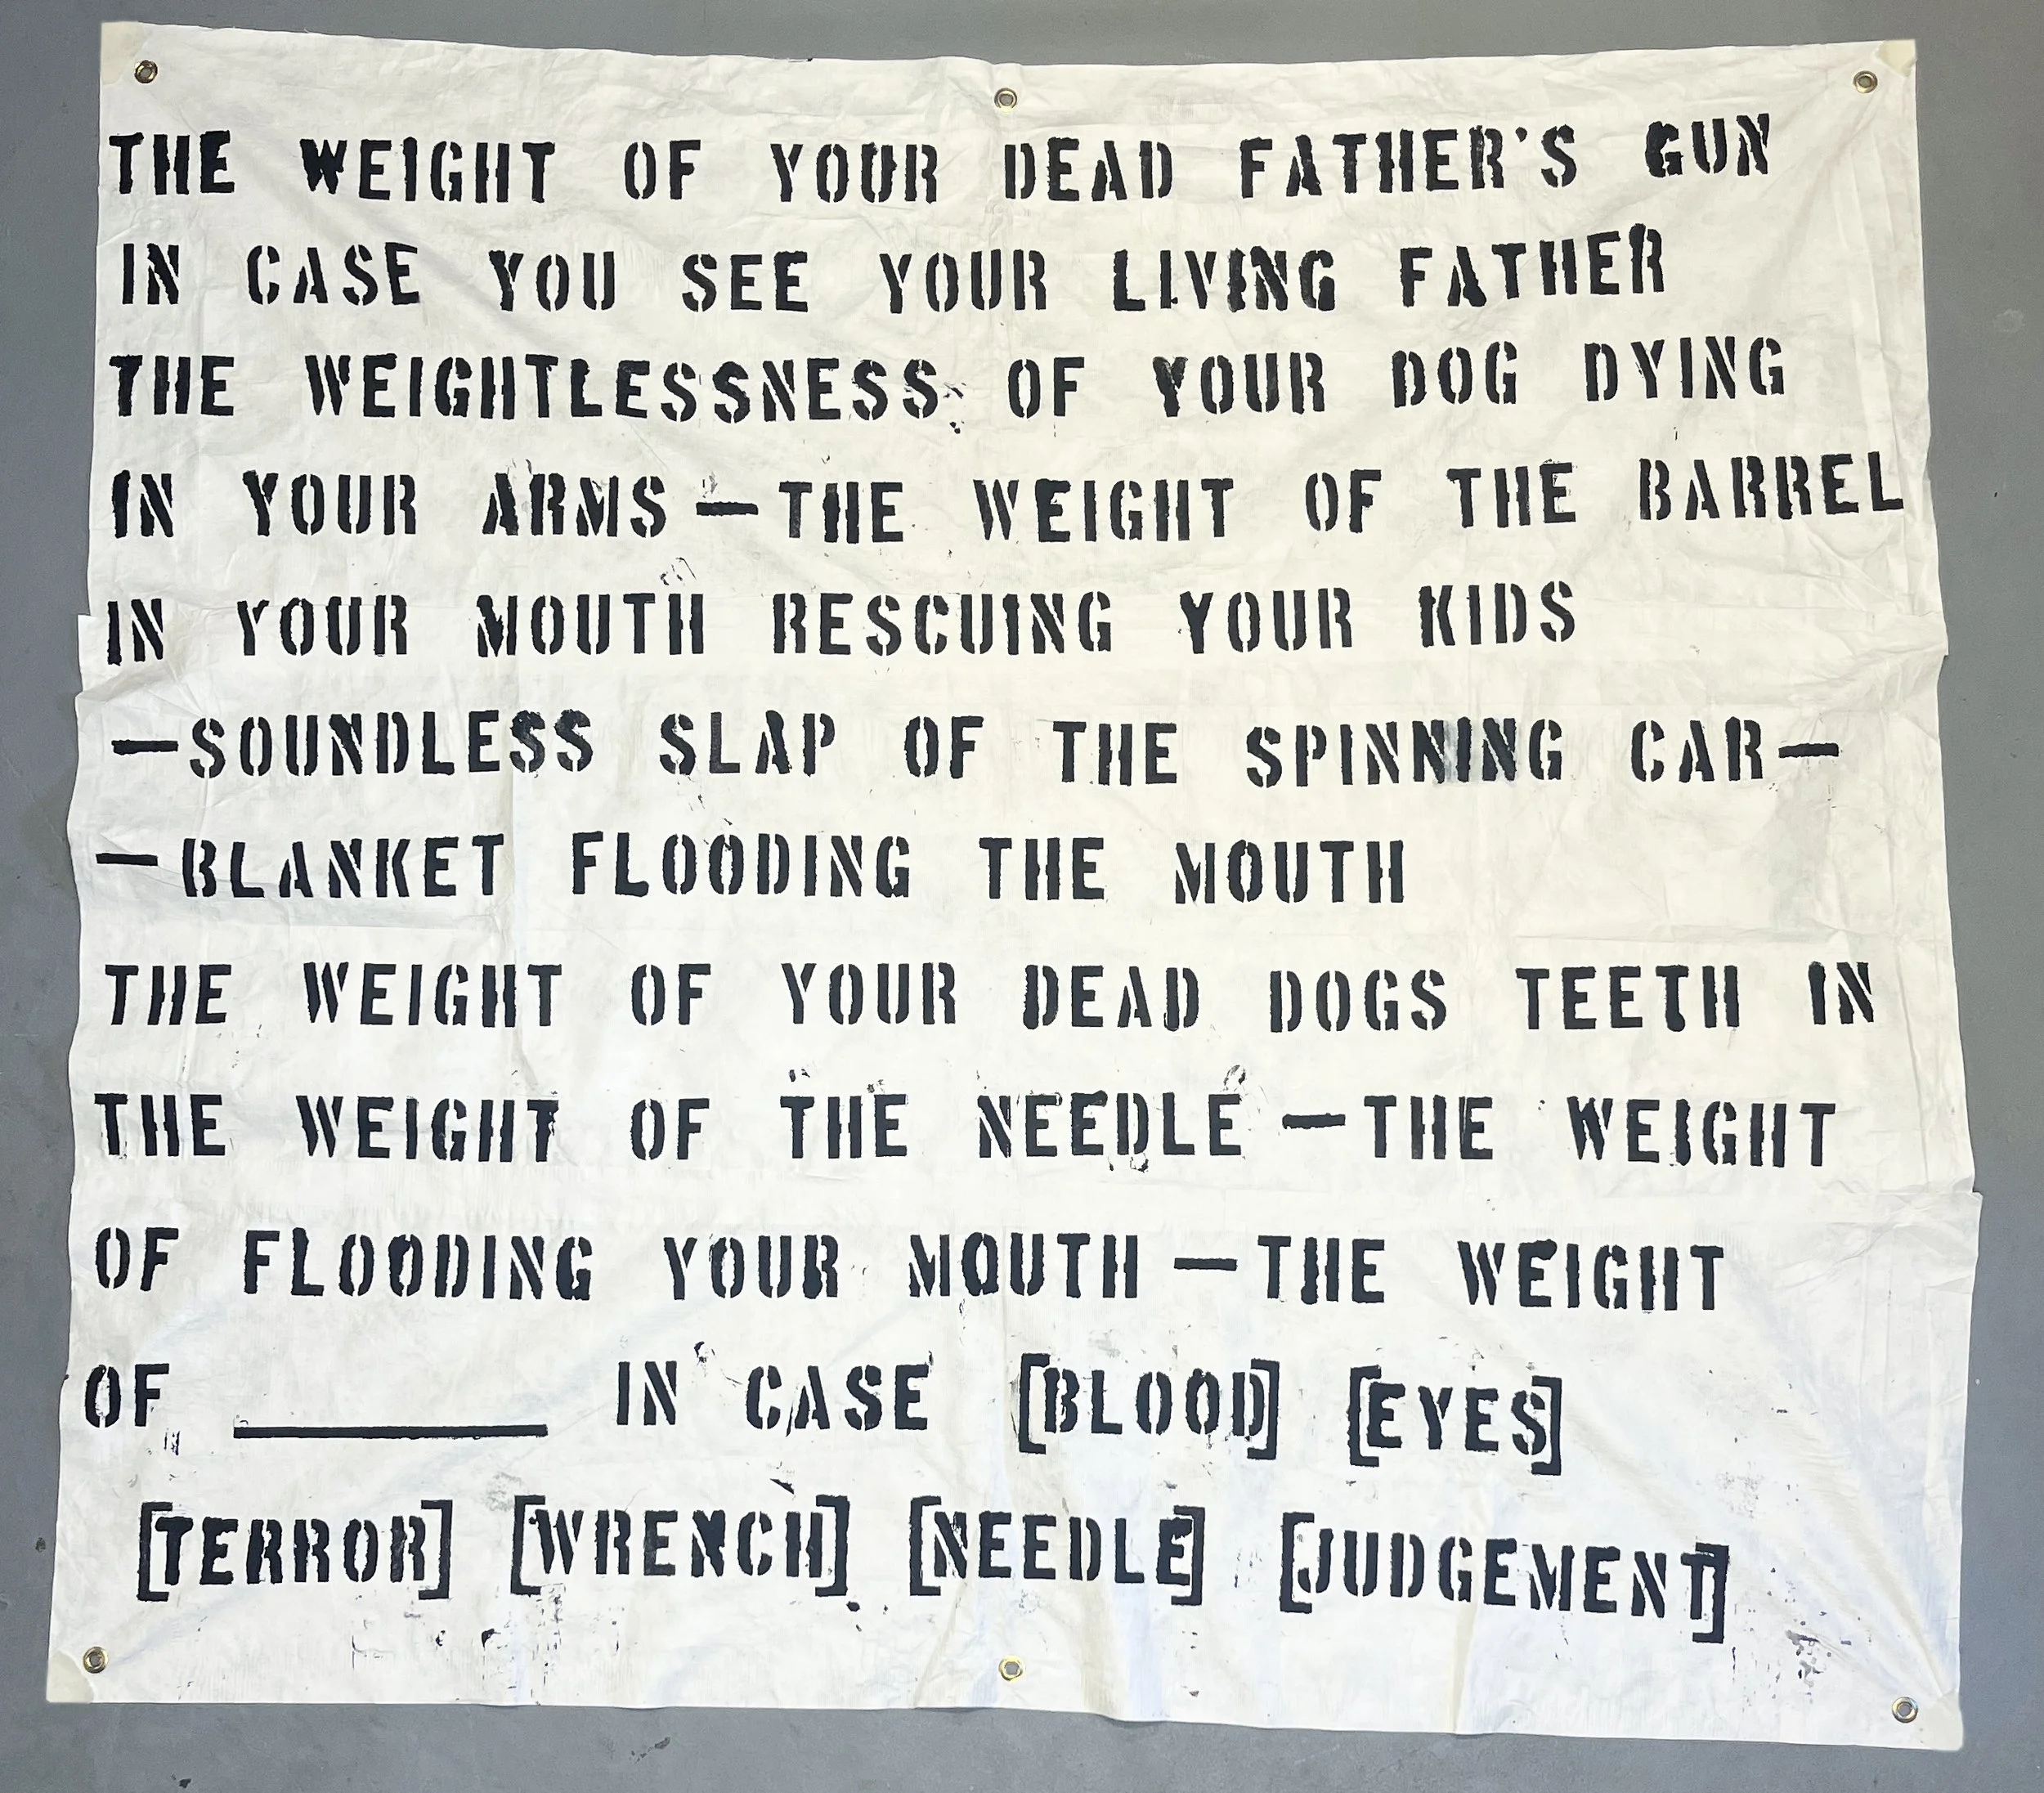 THE WEIGHT OF YOUR DEAD FATHER'S GUN
IN CASE YOU SEE YOUR LIVING FATHER
THE WEIGHTLESSNESS OF YOUR DOG DYING
IN YOUR ARMS —THE WEIGHT OF THE BARREL
IN YOUR MOUTH RESCUING YOUR KIDS
—SOUNDLESS SLAP OF THE SPINNING CAR—
—BLANKET FLOODING THE MOUTH
THE WEIGHT OF YOUR DEAD DOGS TEETH IN
THE WEIGHT OF THE NEEDLE —THE WEIGHT
OF FLOODING YOUR MOUTH —THE WEIGHT
OF __________ IN CASE [BLOOD] [EYES]
[TERROR] [WRENCH] [NEEDLE] [JUDGEMENT]